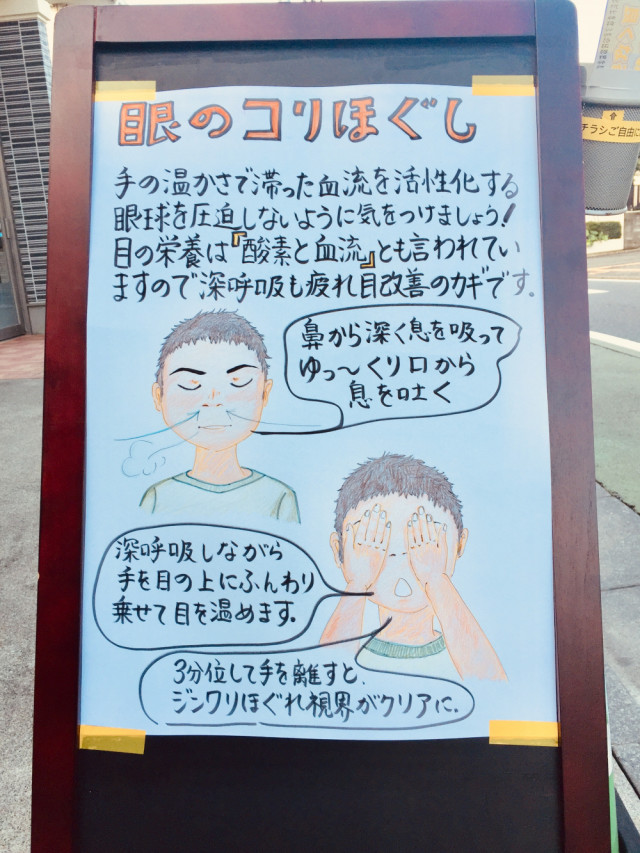 眼のコリほぐし
手の温かさで滞った血流を活性化する
眼球を圧迫しないように気をつけましょう!
目の栄養は『酸素と血流』とも言われてい
ますので深呼吸も疲れ目改善のカギです.
鼻から深く息を吸って
ゆっ〜くり口から
息を吐く
深呼吸しながら
手を目の上にふんわり
乗せて目を温めます.
3分位して手を離すと.
ジンワリほぐれ視界がクリアに.
チラシご自由に